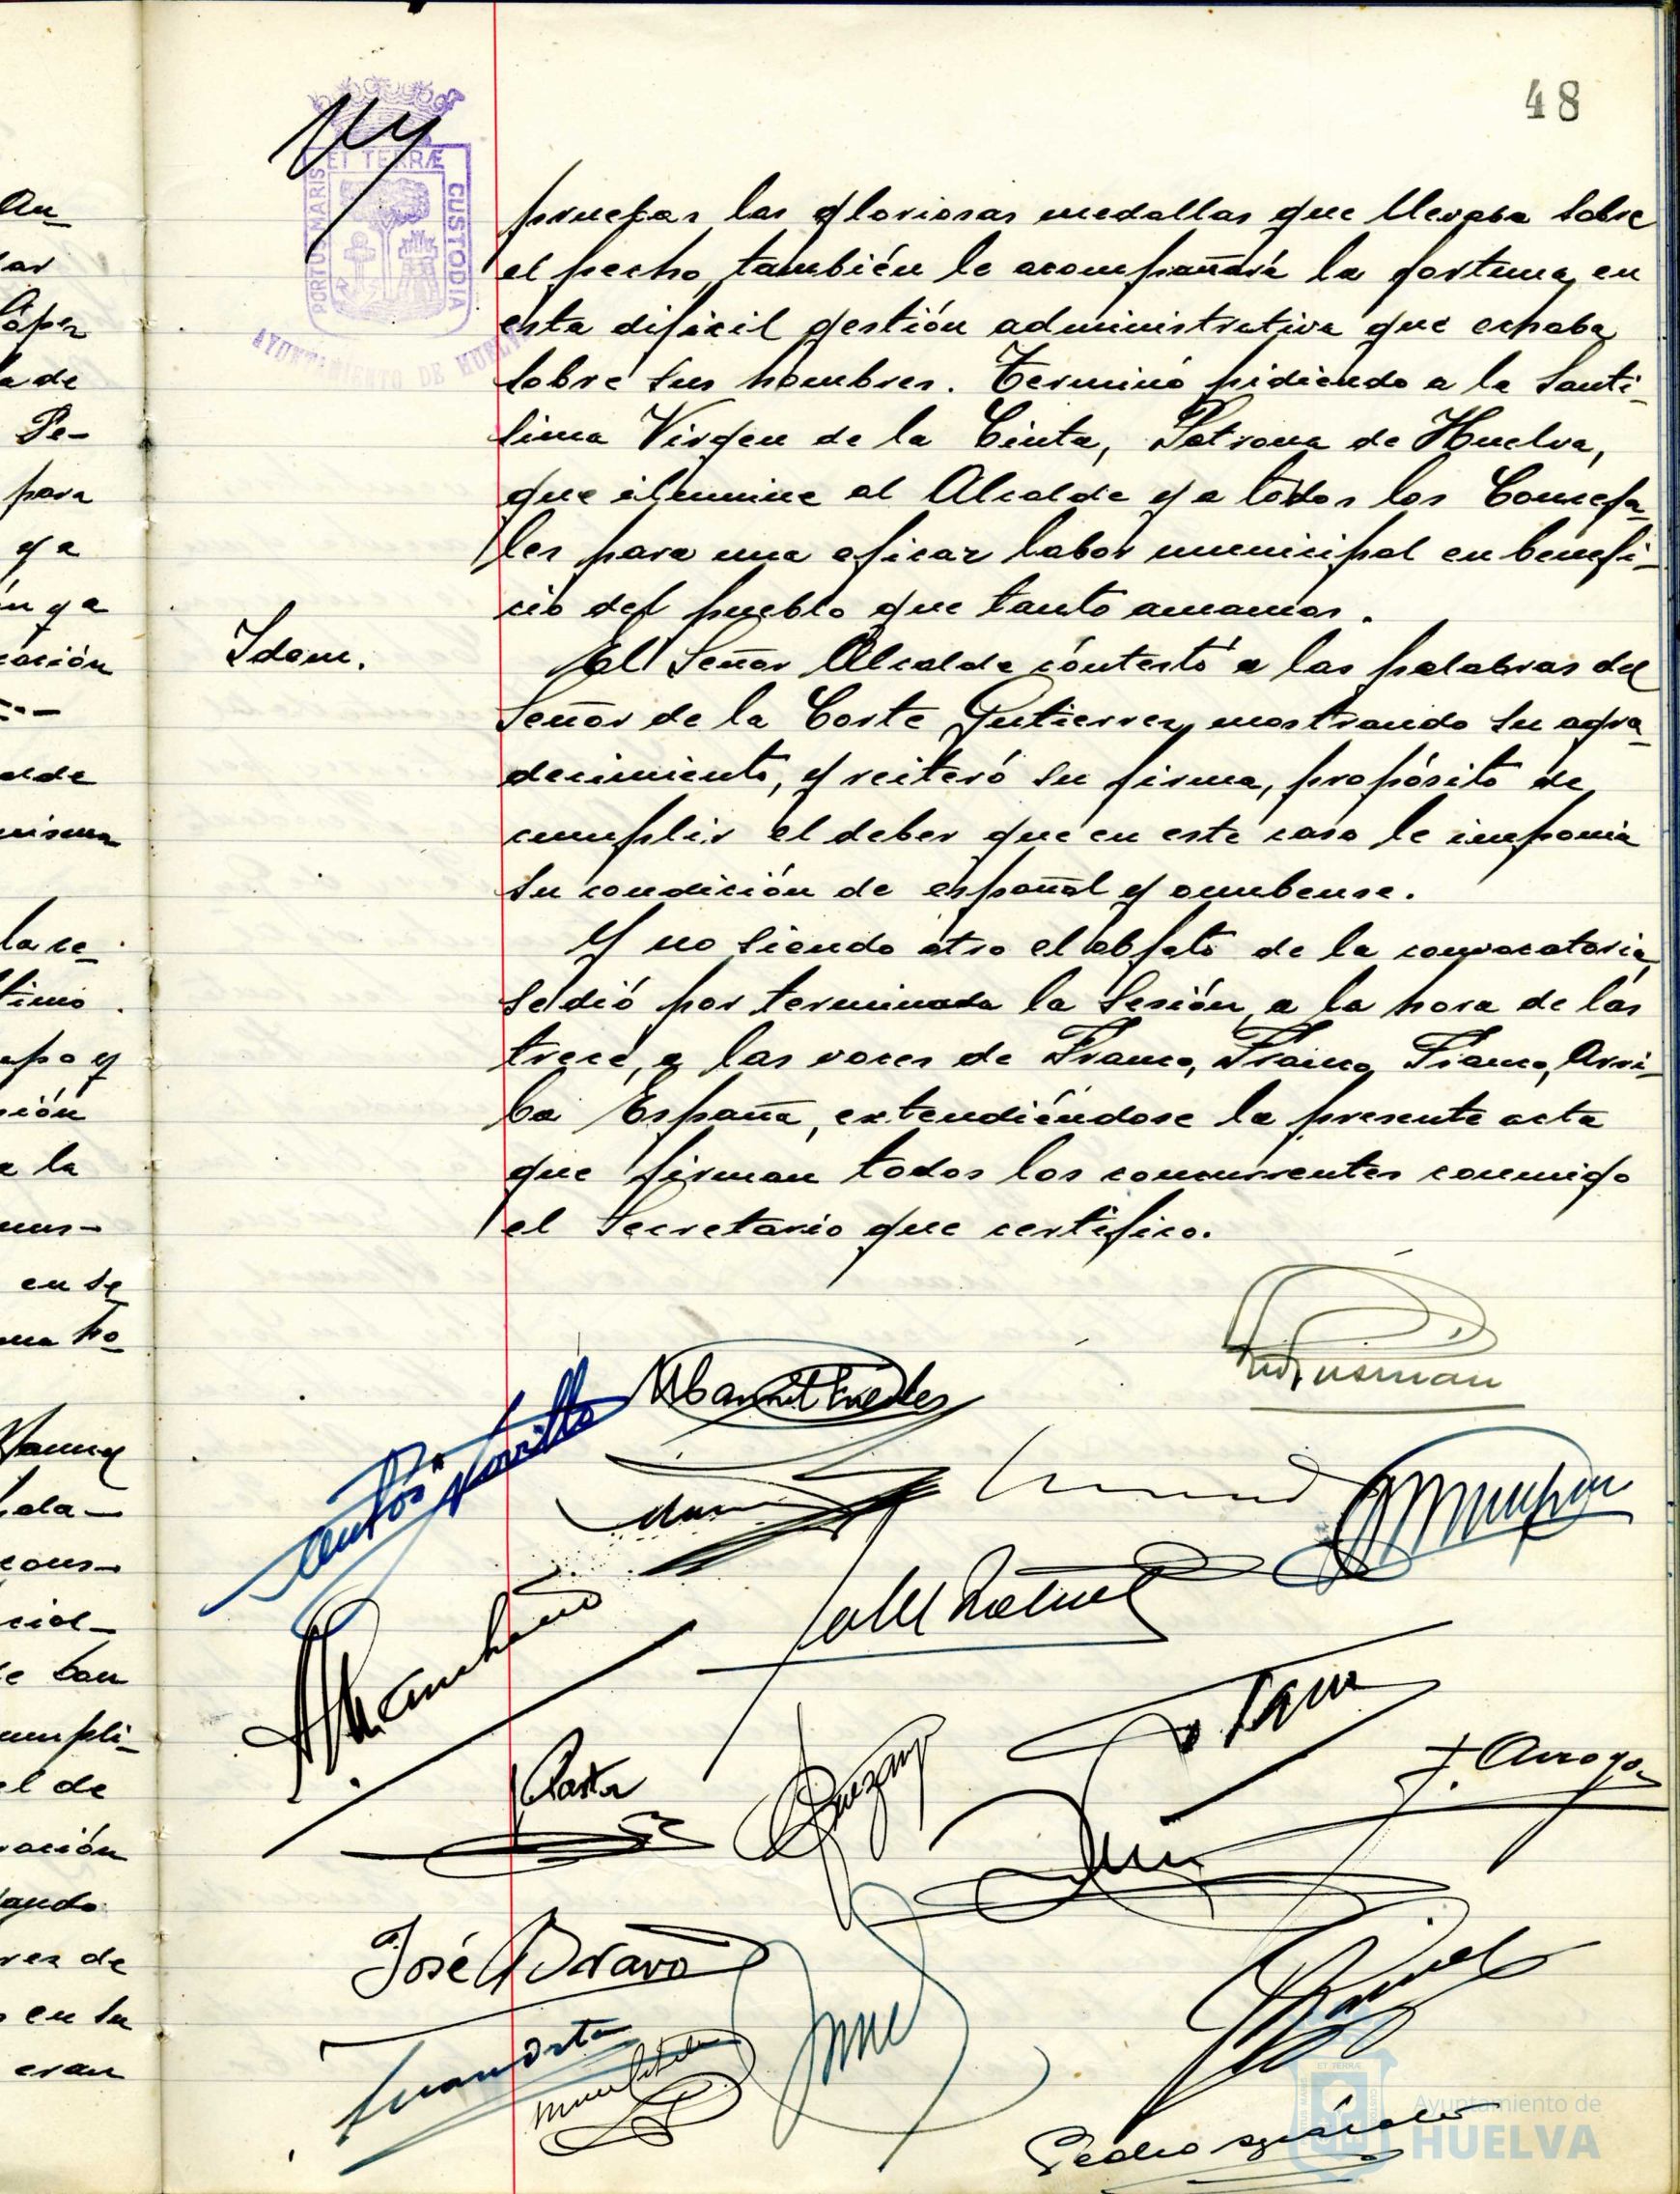 48
ET TERRÆ
PORTUS MARIS
CUSTODIA
AYUNTAMIENTO DE HUELVA
pruebas las gloriosas medallas que llevaba sobre
el pecho, también le acompañará la fortuna, en
esta difícil gestión administrativa que echaba
sobre sus hombres. Terminó pidiendo a la Santí-
sima Virgen de la Cinta, Patrona de Huelva,
que ilumine al Alcalde y a todos los Conceja-
les para una eficaz labor municipal en benefi-
cio del pueblo que tanto amamos.
Idem.
El Señor Alcalde contestó a las palabras del
Señor de la Corte Gutierrez, mostrando su agra-
decimiento, y reiteró su firme, propósito de
cumplir el deber que en este caso le imponia
su condición de español y onubense.
Y no siendo otro el objeto de la convocatoria,
se dió por terminada la Sesión, a la hora de las
trece, a las voces de Franco, Franco, Franco, Arri-
ba España, extendiéndose la presente acta
que firman todos los concurrentes conmigo
el Secretario que certifico.
J. Arroyo
José Bravo
Juan Orta
Pedro
An-
ar
López
a de
Pe-
para
y a
n y a
cación
alde
misma
la ce-
timo
po y
ión
a la
mus-
en se
ma ho-
Manuel
ela-
cons-
cial-
e ban
umpli-
el de
ación
ando
res de
en su
eran
ET TERRÆ
Ayuntamiento de
HUELVA